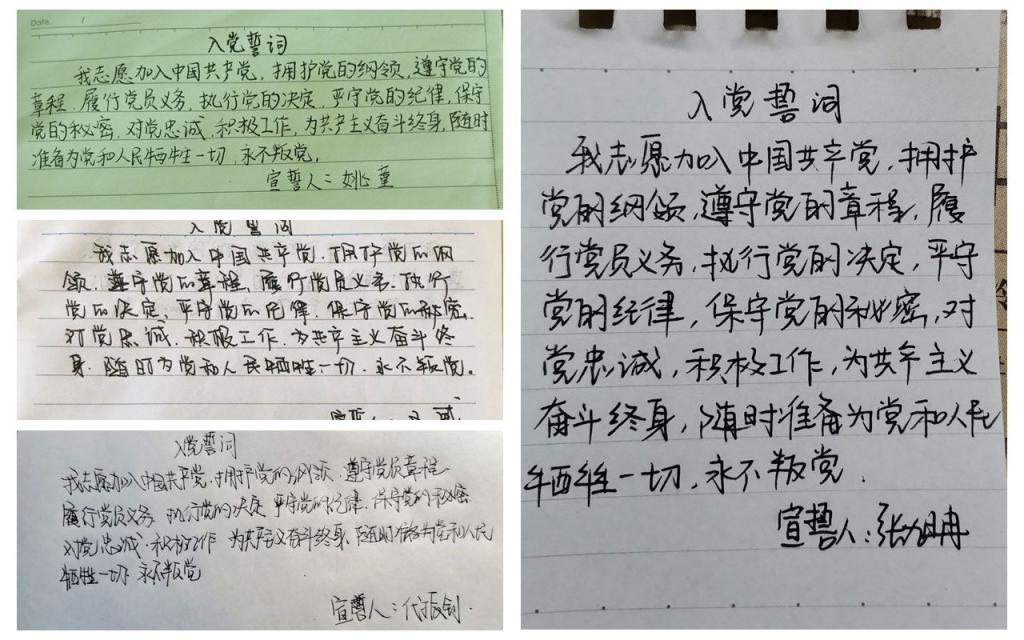 Date. 1
入党誓词
我志愿加入中国共产党，拥护党的纲领，遵守党的
章程，履行党员义务，执行党的决定，严守党的纪律，保守
党的秘密，对党忠诚，积极工作，为共产主义奋斗终身，随时
准备为党和人民牺牲一切，永不叛党。
宣誓人：姚堇
入党誓词
我志愿加入中国共产党，拥护党的纲
领，遵守党的章程，履行党员义务，执行
党的决定，严守党的纪律，保守党的秘密，
对党忠诚，积极工作，为共产主义奋斗终
身，随时为党和人民牺牲一切，永不叛党。
宣誓人
入党誓词
我志愿加入中国共产党，拥护党的纲领，遵守党员章程
履行党员义务 执行党的决定 严守党的纪律，保守党的秘密
对党忠诚，积极工作 为共产主义奋斗终身，随时准备为党和人民
牺牲一切 永不叛党
宣誓人：代振钊
入党誓词
我志愿加入中国共产党，拥护
党的纲领，遵守党的章程，履
行党员义务，执行党的决定，严守
党的纪律，保守党的秘密，对
党忠诚，积极工作，为共产主义
奋斗终身，随时准备为党和人民
牺牲一切，永不叛党.
宣誓人：张冉